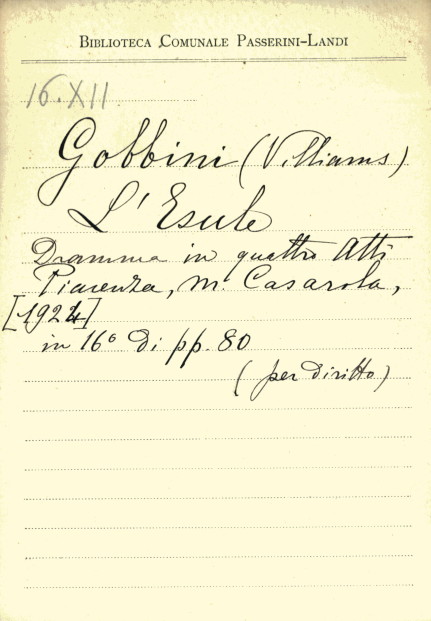 BIBLIOTECA COMUNALE PASSERINI-LANDI
16.XII
Gobbini (Villiams)
L'Esule
Dramma in quattro Atti
Piacenza, M. Casarola,
[1924]
in 16° di pp. 80
(per diritto)